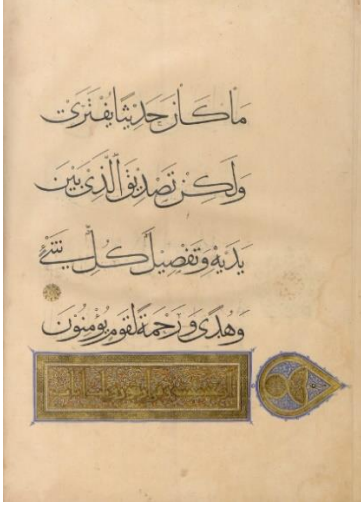 مَا كَانَ حَدِيثًا يُفْتَرَىٰ
وَلَٰكِن تَصْدِيقَ الَّذِي بَيْنَ
يَدَيْهِ وَتَفْصِيلَ كُلِّ شَيْءٍ
وَهُدًى وَرَحْمَةً لِّقَوْمٍ يُؤْمِنُونَ